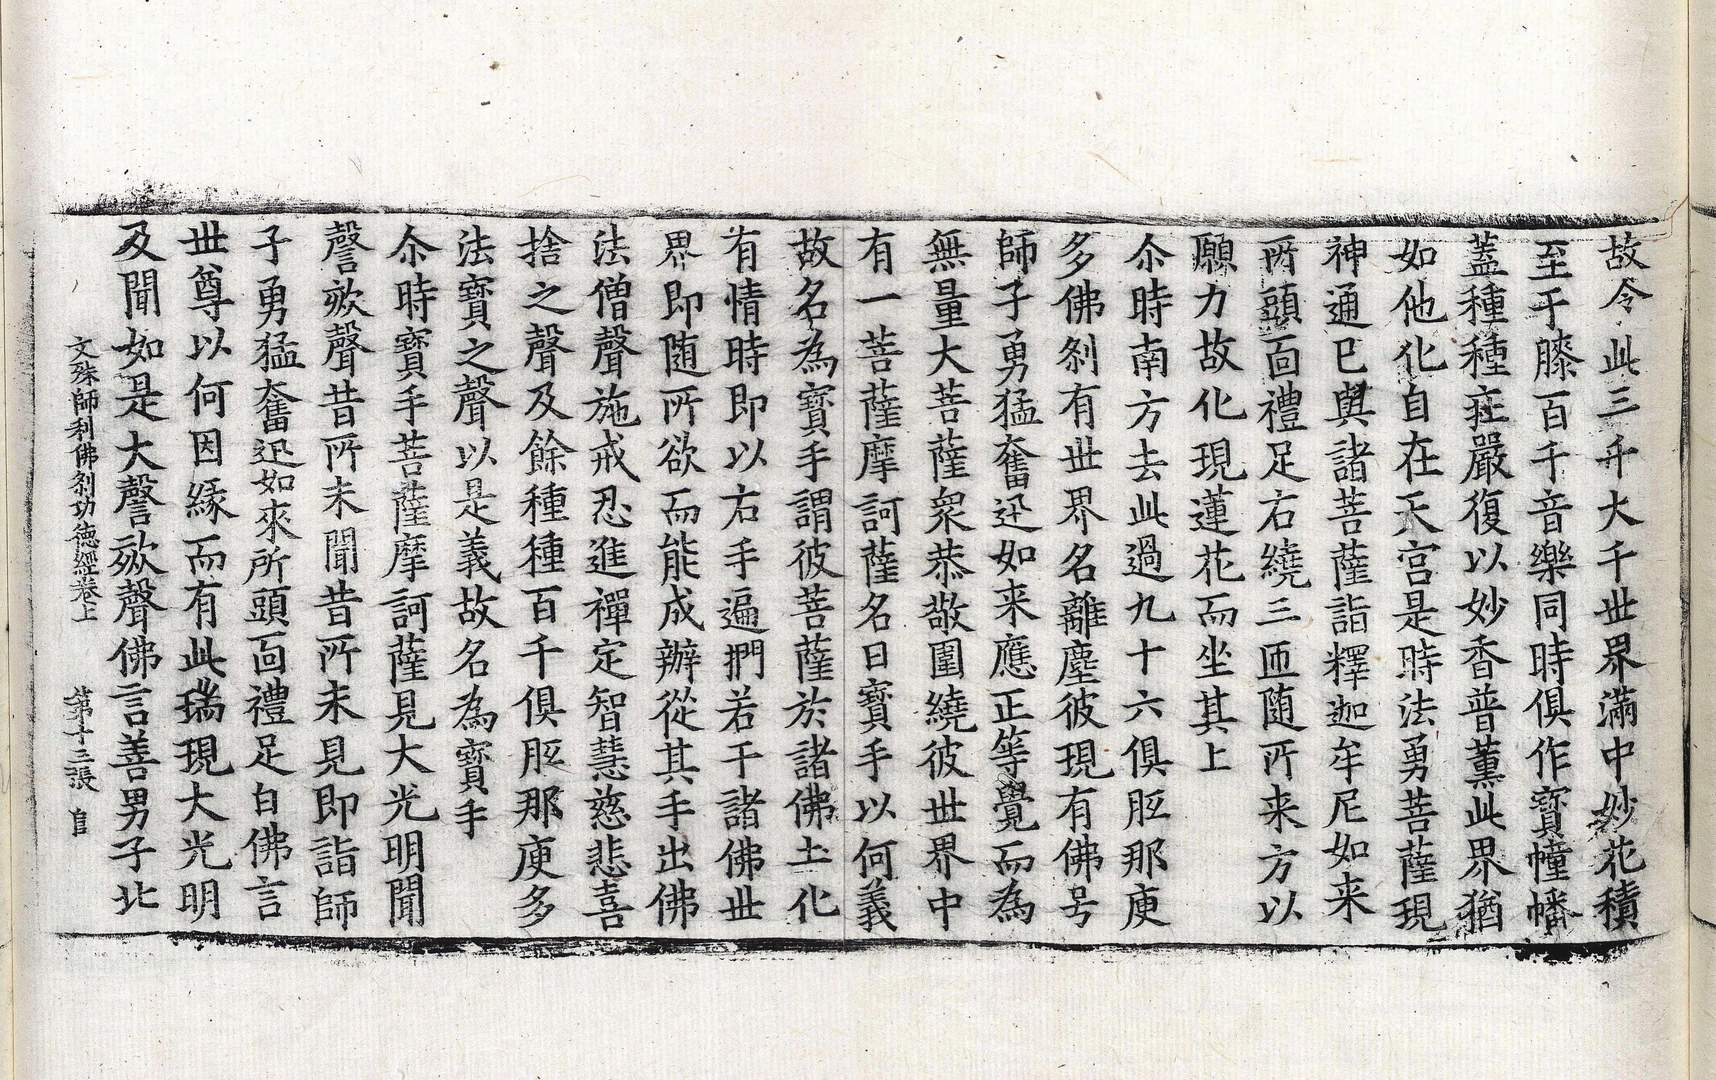 故令此三千大千世界滿中妙花積
至于膝百千音樂同時俱作寶幢幡
蓋種種莊嚴復以妙香普薰此界猶
如他化自在天宮是時法勇菩薩現
神通已與諸菩薩詣釋迦牟尼如来
所頭面禮足右繞三匝随所来方以
願力故化現蓮花而坐其上
尒時南方去此過九十六俱胝那庾
多佛刹有世界名離塵彼現有佛号
師子勇猛奮迅如来應正等覺而為
無量大菩薩衆恭敬圍繞彼世界中
有一菩薩摩訶薩名曰寶手以何義
故名為寶手謂彼菩薩於諸佛土化
有情時即以右手遍捫若干諸佛世
界即随所欲而能成辦從其手出佛
法僧聲施戒忍進禪定智慧慈悲喜
捨之聲及餘種種百千俱胝那庾多
法寶之聲以是義故名為寶手
尒時寶手菩薩摩訶薩見大光明聞
謦欬聲昔所未聞昔所未見即詣師
子勇猛奮迅如來所頭面禮足白佛言
世尊以何因緣而有此瑞現大光明
及聞如是大謦欬聲佛言善男子北
文殊師利佛刹功德經卷上 第十三張 自